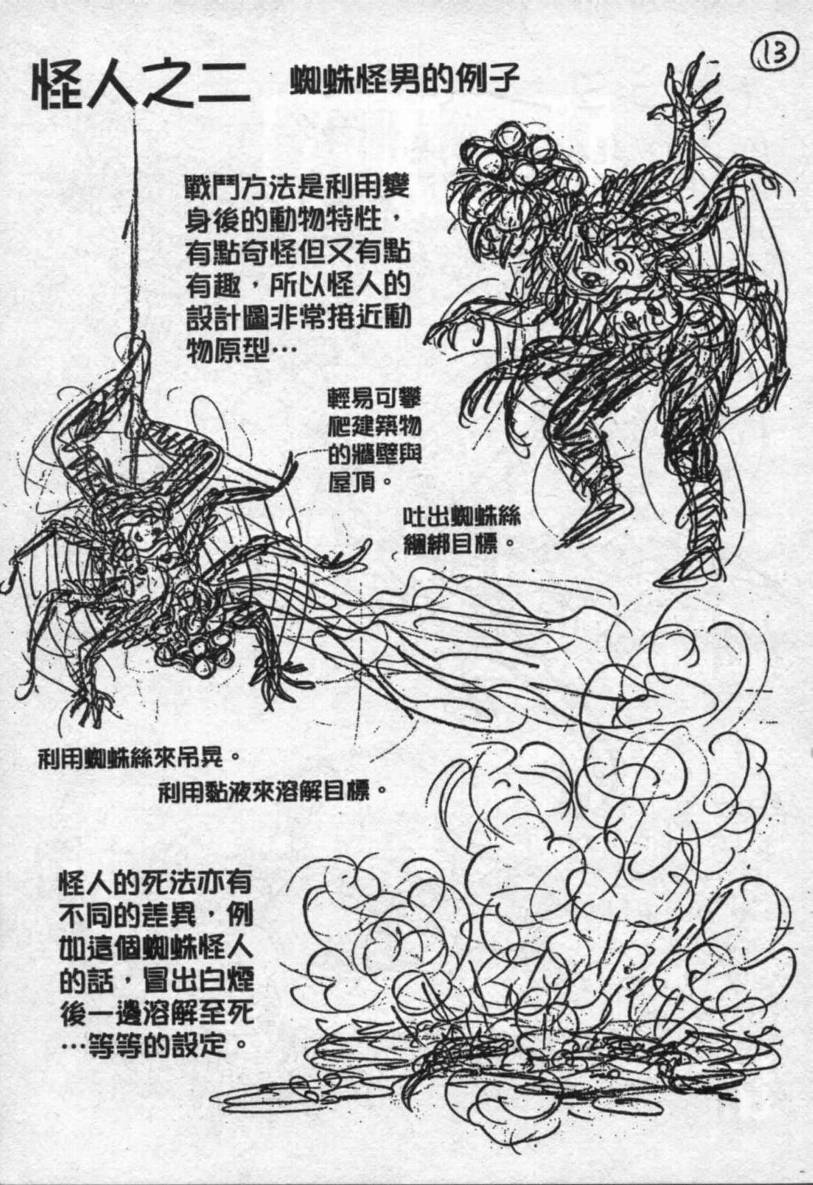 13
怪人之二
蜘蛛怪男的例子
戰鬥方法是利用變
身後的動物特性，
有點奇怪但又有點
有趣，所以怪人的
設計圖非常接近動
物原型…
輕易可攀
爬建築物
的牆壁與
屋頂。
吐出蜘蛛絲
綑綁目標。
利用蜘蛛絲來吊晃。
利用黏液來溶解目標。
怪人的死法亦有
不同的差異，例
如這個蜘蛛怪人
的話，冒出白煙
後一邊溶解至死
…等等的設定。